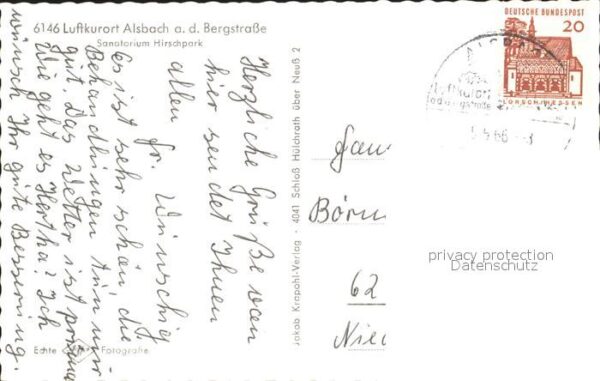 6146 Luftkurort Alsbach a. d. Bergstraße
Sanatorium Hirschpark
Herzliche Grüße von
hier sendet Ihnen
allen
Fr. Wunschig
Es ist sehr schön, die
Behandlungen tun mir
gut. Das Wetter ist prima
Wie geht es Hertha? Ich
wünsch Ihr gute Besserung.
Echte Fotografie
Jakob Krapohl-Verlag · 4041 Schloß Hülchrath über Neuß 2
DEUTSCHE BUNDESPOST
20
LORSCH/HESSEN
ALSBA
Fam
Börn
62
Nied
privacy protection
Datenschutz